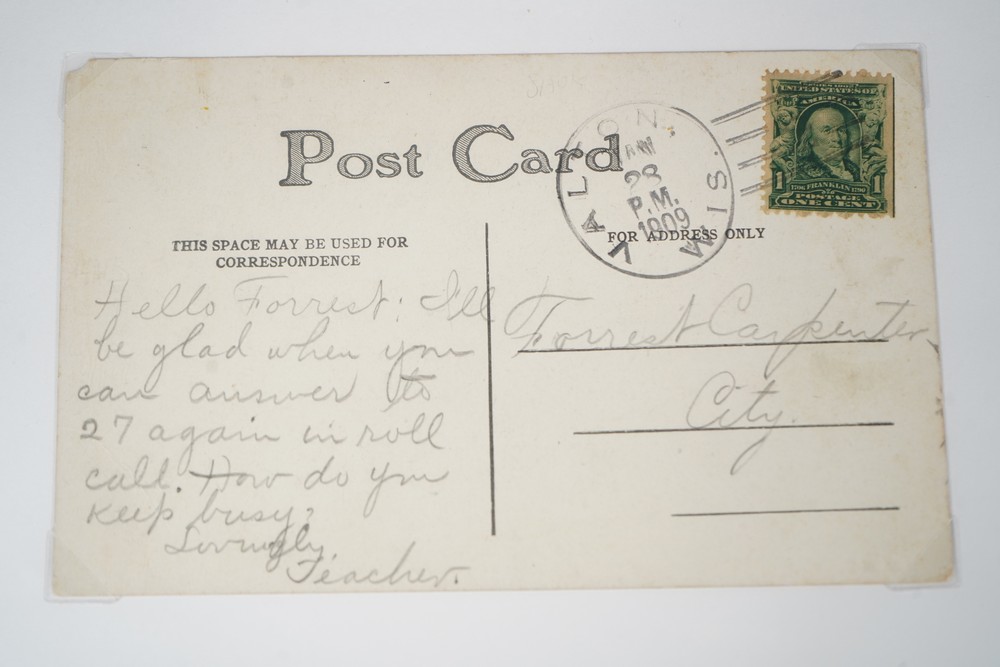 Post Card
VALTON. WIS.
23
P.M.
1909
UNITED STATES OF
AMERICA
1
1706 FRANKLIN 1790
1
POSTAGE
ONE CENT
THIS SPACE MAY BE USED FOR
CORRESPONDENCE
FOR ADDRESS ONLY
Hello Forrest: I'll
be glad when you
can answer to
27 again in roll
call. How do you
keep busy?
Lovingly,
Teacher.
Forrest Carpenter
City.